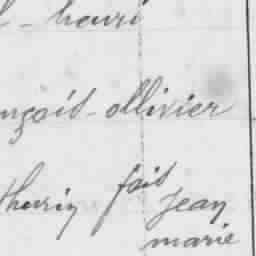 - henri
nçois - ollivier
thurin fait Jean
marie